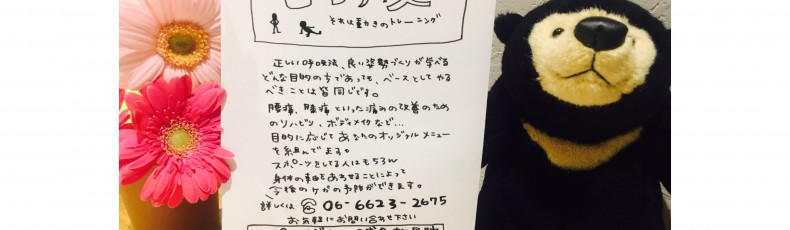 それは動かきのトレーニング
正しい呼吸法、良い姿勢づくりが学べる
どんな目的の方であっても、ベースとしてやる
べきことは皆同じです。
腰痛、膝痛といった痛みの改善のため
のリハビリ、ボディメイクなど...
目的に応じてあなたのオリジナルメニュー
を組んでます。
スポーツをしてる人はもちろん
身体の軸をあわせることによって
今後のケガの予防ができます。
詳しくは ☎ 06-6623-2675
お気軽にお問い合せ下さい